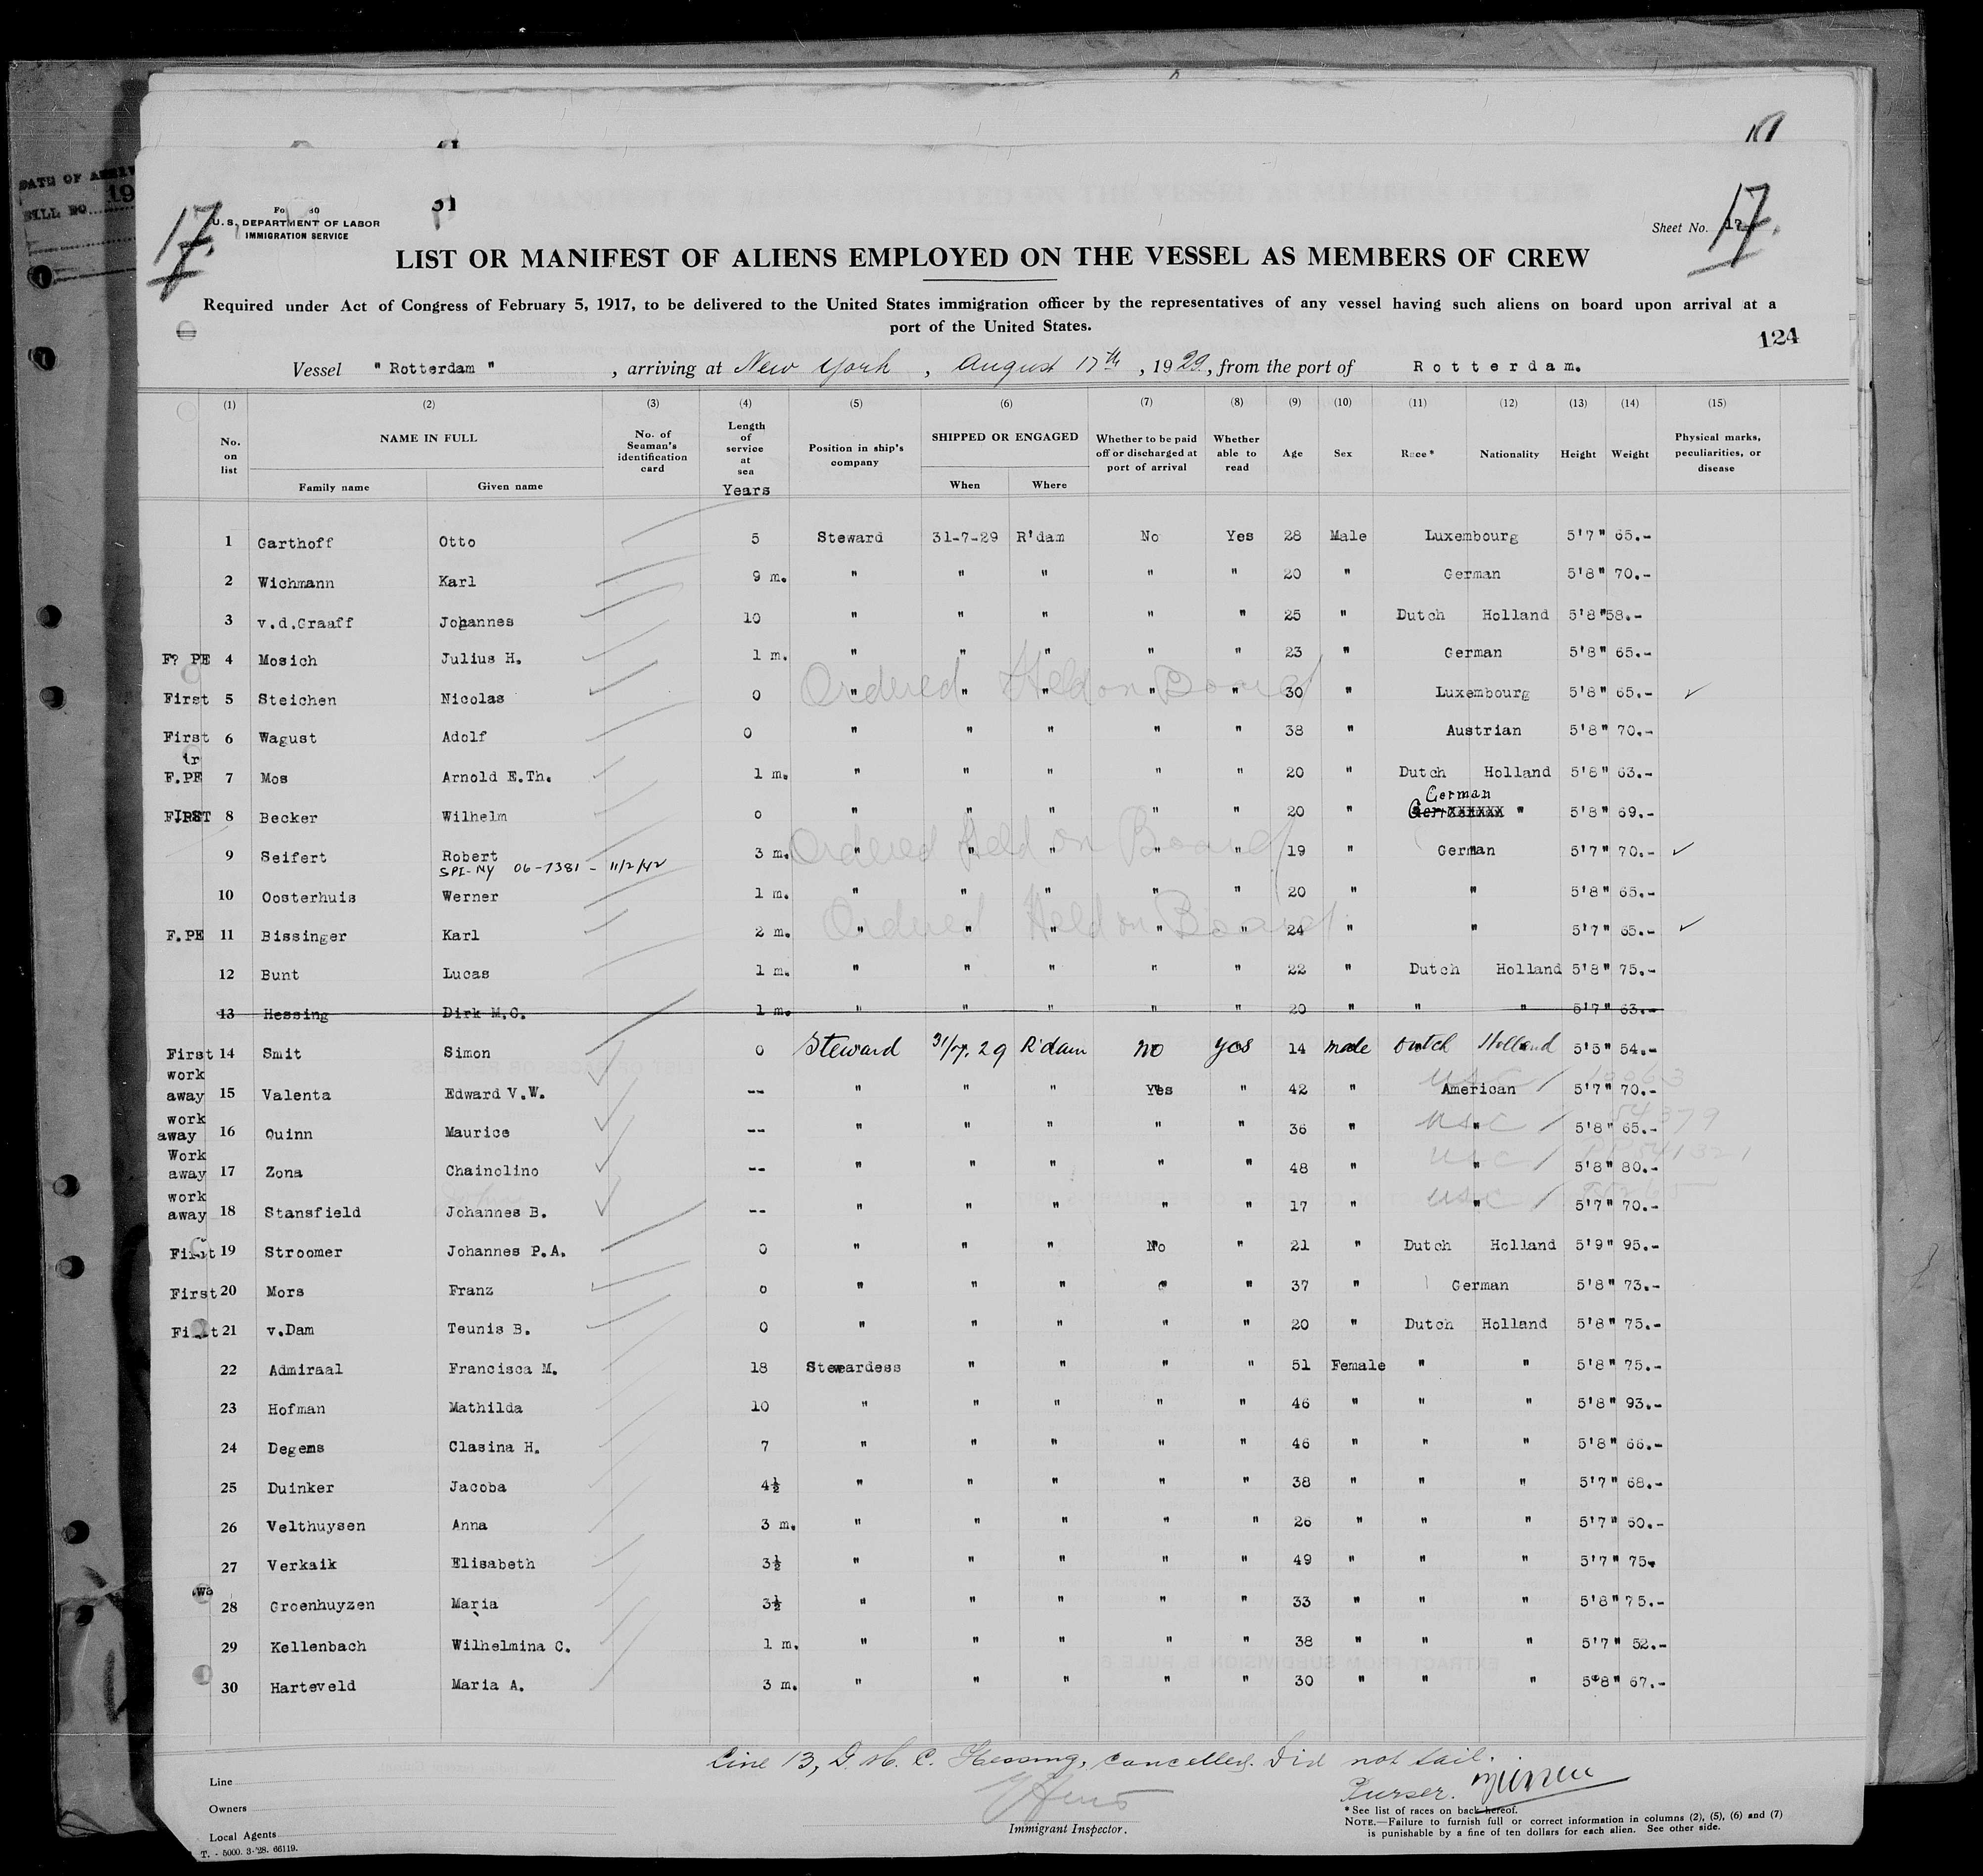 DATE OF
BILL NO. 19
17
31
U.S. DEPARTMENT OF LABOR
IMMIGRATION SERVICE
Sheet No. 17
LIST OR MANIFEST OF ALIENS EMPLOYED ON THE VESSEL AS MEMBERS OF CREW
Required under Act of Congress of February 5, 1917, to be delivered to the United States immigration officer by the representatives of any vessel having such aliens on board upon arrival at a
port of the United States.
124
Vessel " Rotterdam " , arriving at New York , August 17th , 1929, from the port of Rotterdam.
(1) (2) (3) (4) (5) (6) (7) (8) (9) (10) (11) (12) (13) (14) (15)
No. on list NAME IN FULL Family name Given name No. of Seaman's identification card Length of service at sea Years Position in ship's company SHIPPED OR ENGAGED When Where Whether to be paid off or discharged at port of arrival Whether able to read Age Sex Race* Nationality Height Weight Physical marks, peculiarities, or disease
1 Garthoff Otto 5 Steward 31-7-29 R'dam No Yes 28 Male Luxembourg 5'7" 65.-
2 Wichmann Karl 9 m. " " " " " 20 " German 5'8" 70.-
3 v.d.Graaff Johannes 10 " " " " " 25 " Dutch Holland 5'8" 58.-
F? PE 4 Mosich Julius H. 1 m. " " " " " 23 " German 5'8" 65.-
Ordered Held on Board
First 5 Steichen Nicolas 0 " " " " " 30 " Luxembourg 5'8" 65.- ✓
First 6 Wagust Adolf 0 " " " " " 38 " Austrian 5'8" 70.-
F.PE 7 Mos Arnold E.Th. 1 m. " " " " " 20 " Dutch Holland 5'8" 63.-
German
FIRST 8 Becker Wilhelm 0 " " " " " 20 " " 5'8" 69.-
Ordered Held on Board
9 Seifert Robert 3 m. " " " " " 19 " German 5'7" 70.- ✓
SPI-NY 06-7381 - 11/2/42
10 Oosterhuis Werner 1 m. " " " " " 20 " " 5'8" 65.-
Ordered Held on Board
F.PE 11 Bissinger Karl 2 m. " " " " " 24 " " 5'7" 65.- ✓
12 Bunt Lucas 1 m. " " " " " 22 " Dutch Holland 5'8" 75.-
13 Hessing Dirk M.C. 1 m. " " " " " 20 " " " 5'7" 63.-
First 14 Smit Simon 0 Steward 31/7.29 R'dam no yes 14 male Dutch Holland 5'5" 54.-
work away 15 Valenta Edward V.W. -- " " " Yes " 42 " USC American 5'7" 70.-
work away 16 Quinn Maurice -- " " " " " 36 " USC " 5'8" 65.-
Work away 17 Zona Chainolino -- " " " " " 48 " USC " 5'8" 80.-
work away 18 Stansfield Johannes B. -- " " " " " 17 " USC " 5'7" 70.-
First 19 Stroomer Johannes P.A. 0 " " " No " 21 " Dutch Holland 5'9" 95.-
First 20 Mors Franz 0 " " " " " 37 " German 5'8" 73.-
First 21 v.Dam Teunis B. 0 " " " " " 20 " Dutch Holland 5'8" 75.-
22 Admiraal Francisca M. 18 Stewardess " " " " 51 Female " " 5'8" 75.-
23 Hofman Mathilda 10 " " " " " 46 " " " 5'8" 93.-
24 Degems Clasina H. 7 " " " " " 46 " " " 5'8" 66.-
25 Duinker Jacoba 4½ " " " " " 38 " " " 5'7" 68.-
26 Velthuysen Anna 3 m. " " " " " 26 " " " 5'7" 60.-
27 Verkaik Elisabeth 3½ " " " " " 49 " " " 5'7" 75.
28 Groenhuyzen Maria 3½ " " " " " 33 " " " 5'8" 75.-
29 Kellenbach Wilhelmina C. 1 m. " " " " " 38 " " " 5'7" 52.-
30 Harteveld Maria A. 3 m. " " " " " 30 " " " 5'8" 67.-
Line 13, D. M. C. Hessing, cancelled. Did not sail.
Purser.
Line
Owners
Local Agents
Immigrant Inspector.
* See list of races on back hereof.
NOTE.—Failure to furnish full or correct information in columns (2), (5), (6) and (7)
is punishable by a fine of ten dollars for each alien. See other side.
T. - 5000. 3-'28. 66119.